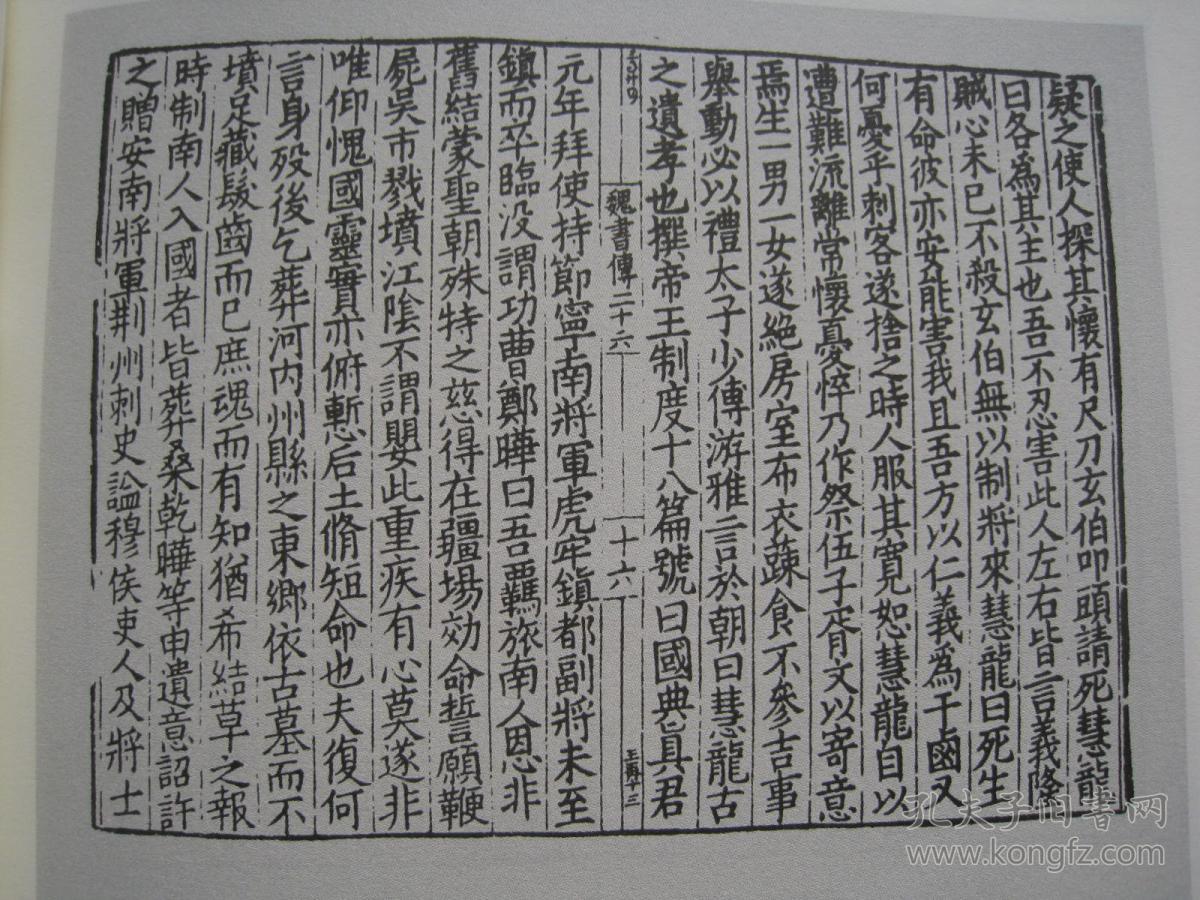 疑之使人探其懷有尺刀玄伯叩頭請死慧龍
曰各為其主也吾不忍害此人左右皆言義隆
賊心未已不殺玄伯無以制將來慧龍曰死生
有命彼亦安能害我且吾方以仁義為干鹵又
何憂乎刺客遂捨之時人服其寬恕慧龍自以
遭難流離常懷憂悴乃作祭伍子胥文以寄意
焉生一男一女遂絕房室布衣蔬食不參吉事
舉動必以禮太子少傅游雅言於朝曰慧龍古
之遺孝也撰帝王制度十八篇號曰國典真君
魏書傳二十六
十六
元年拜使持節寧南將軍虎牢鎮都副將未至
鎮而卒臨没謂功曹鄭曄曰吾羈旅南人恩非
舊結蒙聖朝殊特之慈得在疆場効命誓願鞭
屍吳市戮墳江陰不謂嬰此重疾有心莫遂非
唯仰愧國靈實亦俯慙后土脩短命也夫復何
言身殁後乞葬河内州縣之東鄉依古墓而不
墳足藏髮齒而已庶魂而有知猶希結草之報
時制南人入國者皆葬桑乾曄等申遺意詔許
之贈安南將軍荆州刺史謚穆侯吏人及將士
孔夫子旧書网
www.kongfz.com